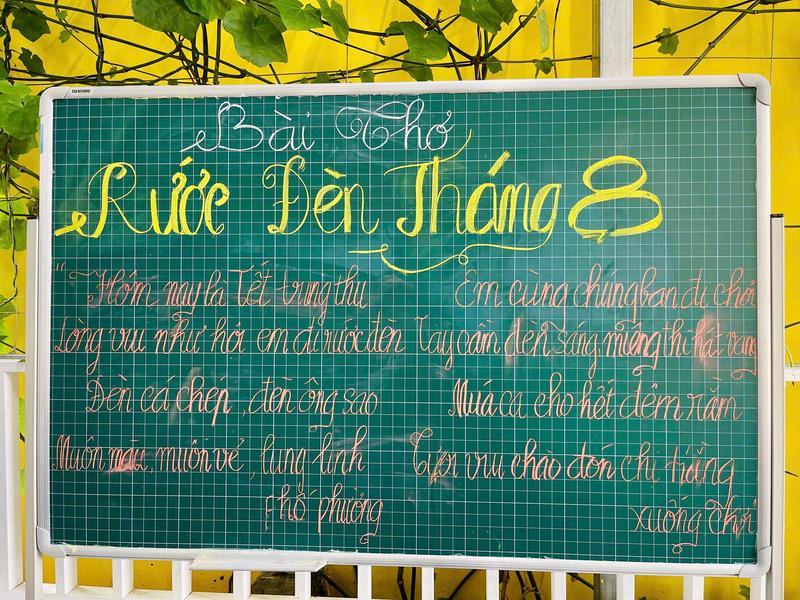 Bài Thơ
Rước Đèn Tháng 8
"Hôm nay là Tết trung thu
Lòng vui như hội em đi rước đèn
Đèn cá chép, đèn ông sao
Muôn màu, muôn vẻ, lung linh
phố phường
Em cùng chúng bạn đi chơi
Tay cầm đèn sáng, miệng thì hát vang
Múa ca cho hết đêm rằm
Tươi vui chào đón chị trăng
xuống chơi